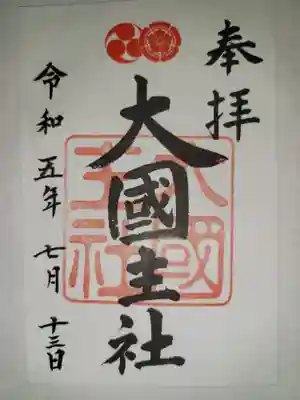 奉拝
大國主社
令和五年七月十三日
大國主社